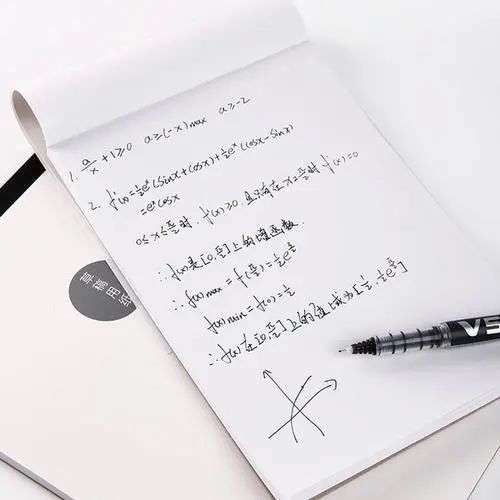 1. a/x + 1 ≥ 0   a ≥ (-x)max   a ≥ -2
2. f'(x) = ½eˣ(sinx + cosx) + ½eˣ(cosx - sinx)
= eˣcosx
0 ≤ x ≤ π/2 时, f'(x) ≥ 0, 且只有在 x = π/2 时 f'(x) = 0
∴ f(x)是[0, π/2]上的增函数.
∴ f(x)max = f(π/2) = ½e^(π/2)
f(x)min = f(0) = ½
∴ f(x)在[0, π/2]上的值域为[½, ½e^(π/2)]
草稿用纸
V5